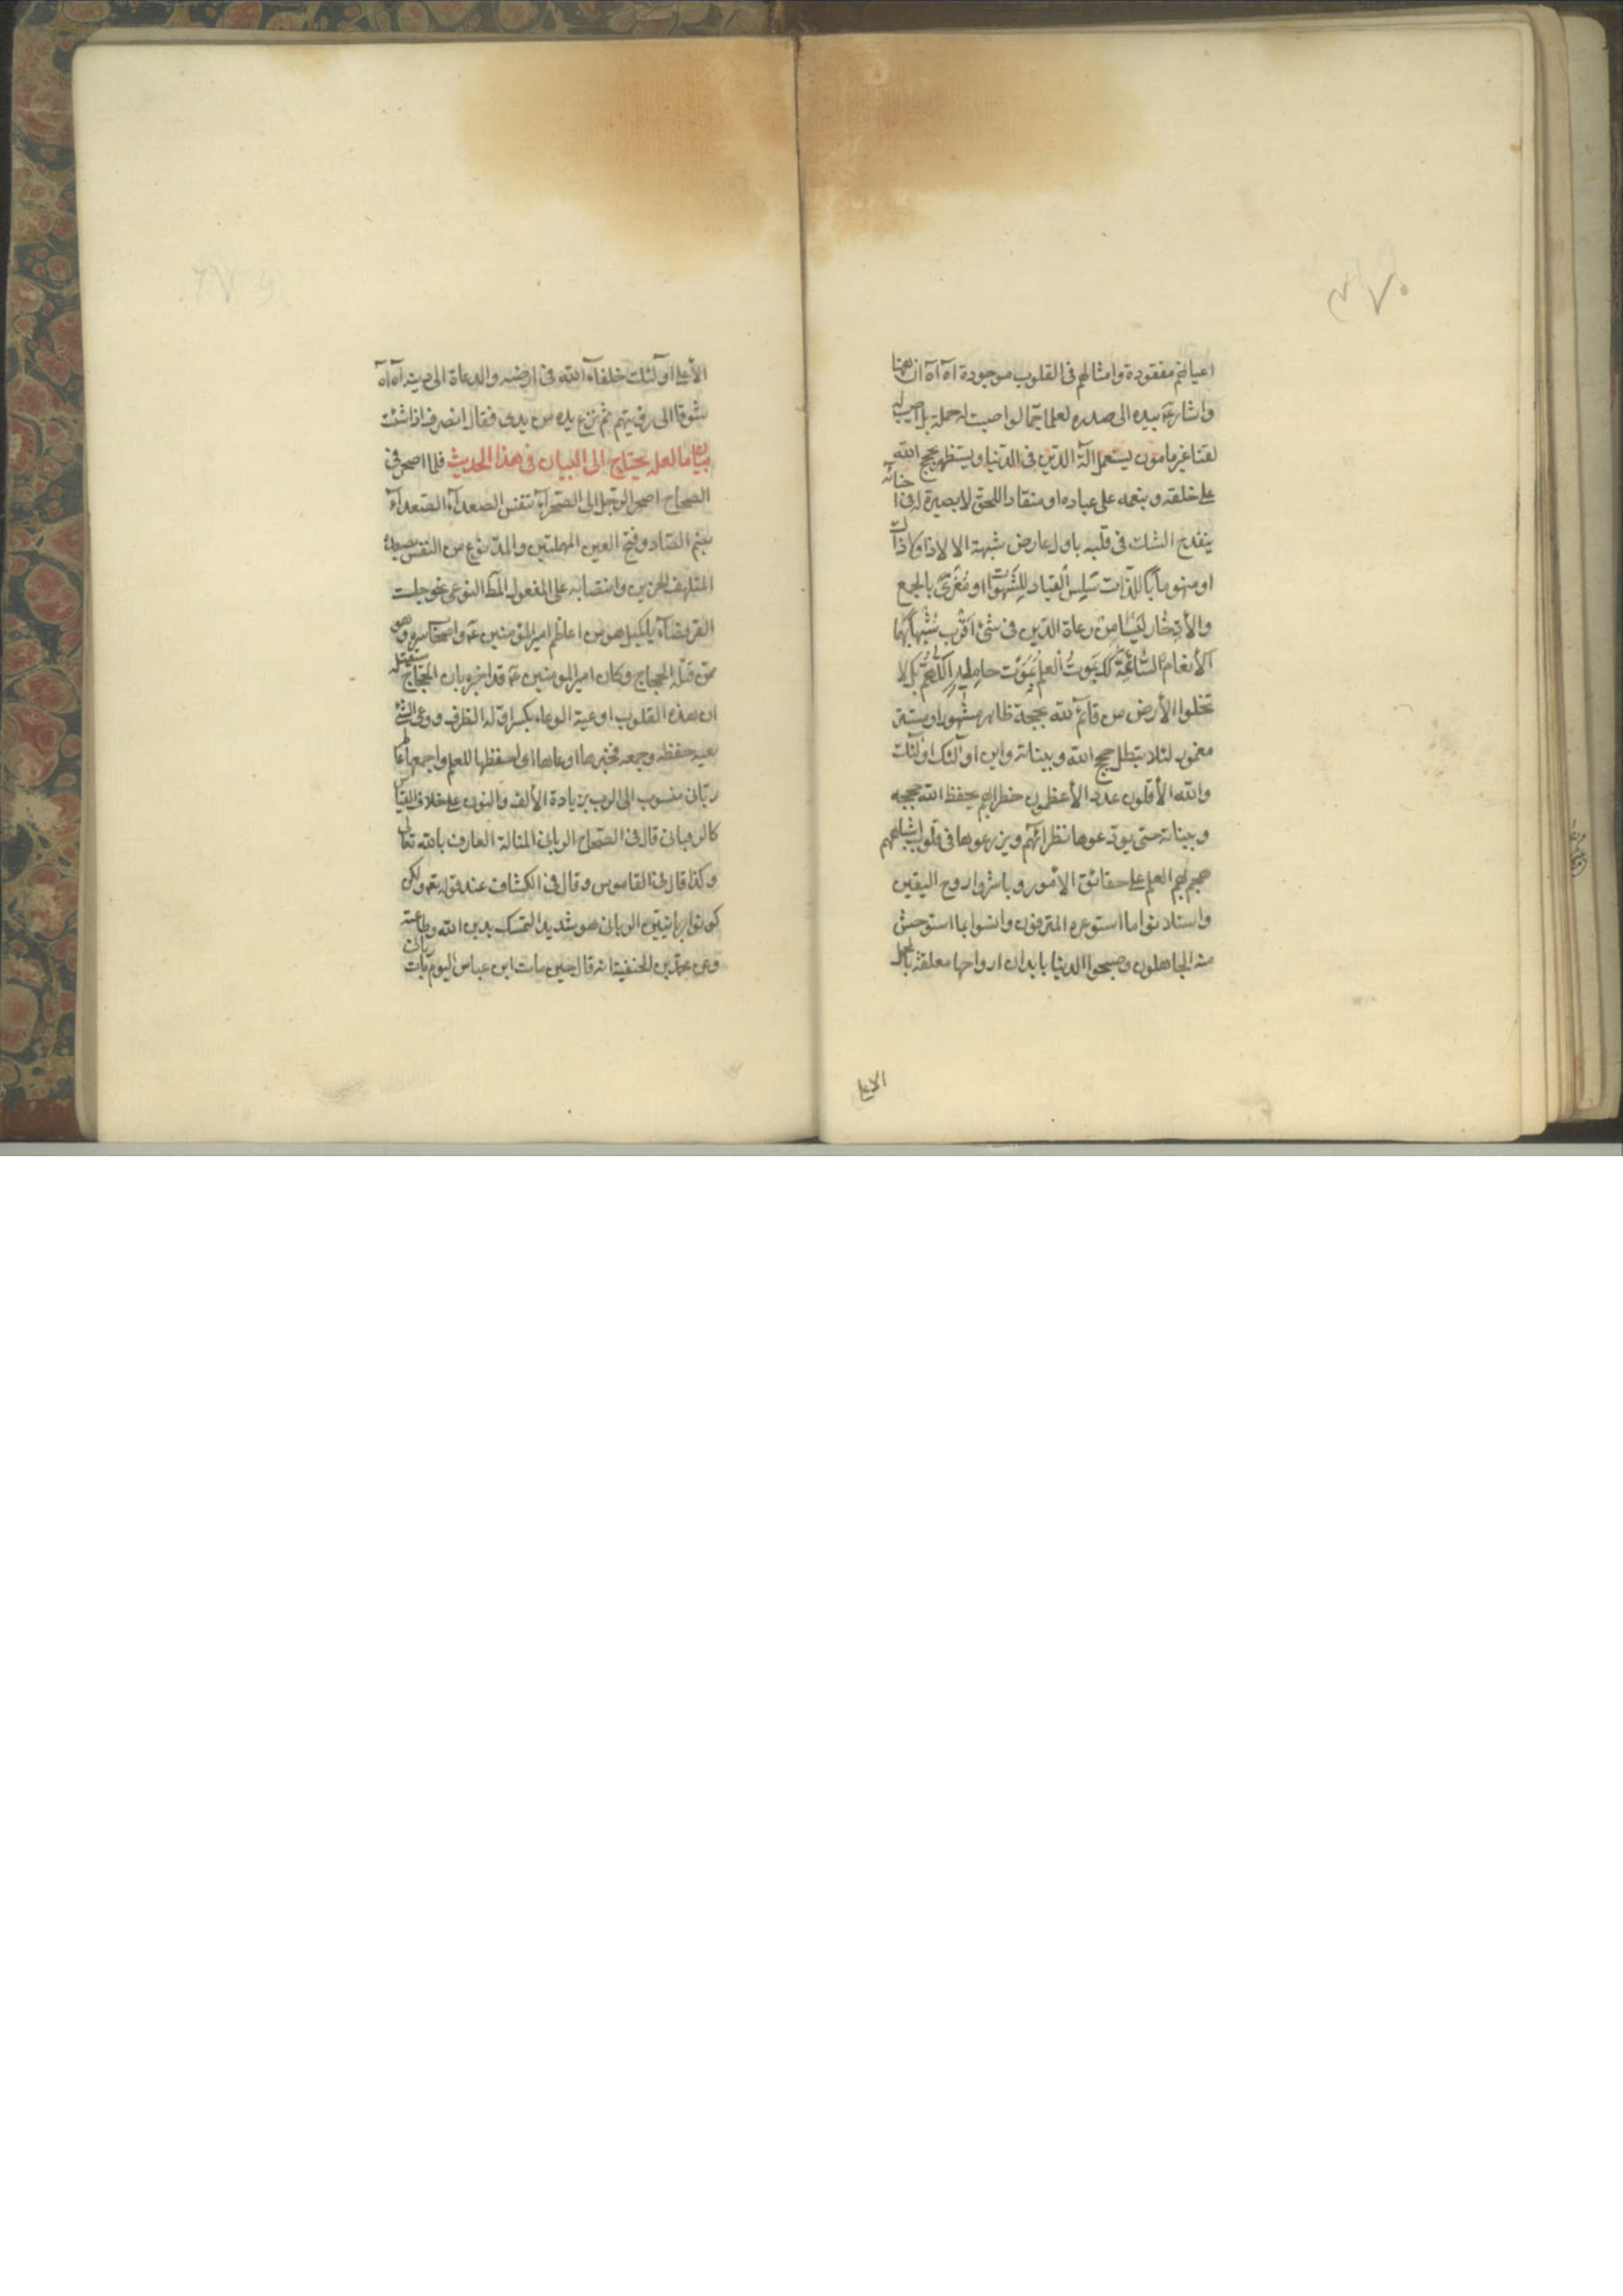 اعيانهم مفقودة وامثالهم في القلوب موجودة آه آه ان ههنا
واشار بيده الى صدره لعلما جما لو اصبت له حملة بل اصيب له
لقنا غير مامون يستعمل آلة الدين في الدنيا ويستظهر بحجج الله
على خلقه وبنعمه على عباده او منقادا للحق لا بصيرة له في احنائه
ينقدح الشك في قلبه باول عارض شبهة الا لا ذا ولا ذاك
او منهوما باللذات سلس القياد للشهوات او مغرى بالجمع
والأدخار ليسا من رعاة الدين في شئ اقرب شبها بهما
الأنعام السائمة كذلك يموت العلم بموت حامليه اللهم بلى لا
تخلوا الأرض من قائم لله بحجة ظاهر مشهور او مستتر
مغمور لئلا يتطل حجج الله وبيناته واين اولئك اولئك
والله الأقلون عددا الأعظمون خطرا بهم يحفظ الله حججه
وبيناته حتى يودعوها نظرائهم ويزرعوها في قلوب اشباههم
هجم بهم العلم على حقائق الأمور وباشروا روح اليقين
واستلانوا ما استوعره المترفون وانسوا بما استوحش
منه الجاهلون وصحبوا الدنيا بابدان ارواحها معلقة بالمحل
الأعلى
الأعلى اولئك خلفاء الله في ارضه والدعاة الى دينه آه آه
شوقا الى رؤيتهم ثم نزع يده من يدي فقال انصرف اذا شئت
بيان ما لعله يحتاج الى البيان في هذا الحديث فلما اصحر في
الصحاح اصحر الرجل الى الصحراء تنفس الصعداء الصعداء
بضم الصاد وفتح العين المهملتين والمد نوع من النفس يصعده
المتلهف الحزين وانتصابه على المفعول المطلق النوعي نحو جلست
القرفصاء يا كميل هو من اعاظم امير المؤمنين واصحاب سره وهو
ممن قتله الحجاج وكان امير المومنين قد اخبره بان الحجاج سيقتله
ان هذه القلوب اوعية الوعاء بكسر اوله الظرف ووعى الشئ
يعيه حفظه وجمعه فخيرها اوعاها اي احفظها للعلم واجمعها عالم
رباني منسوب الى الرب بزيادة الألف والنون على خلاف القياس
كالروحاني قال في الصحاح الرباني المتاله العارف بالله تعالى
وكذا قال في القاموس وقال في الكشاف عند قوله تعالى ولكن
كونوا ربانيين الرباني هو شديد التمسك بدين الله وطاعته
وعن محمد بن الحنفية انه قال حين مات ابن عباس اليوم مات رباني